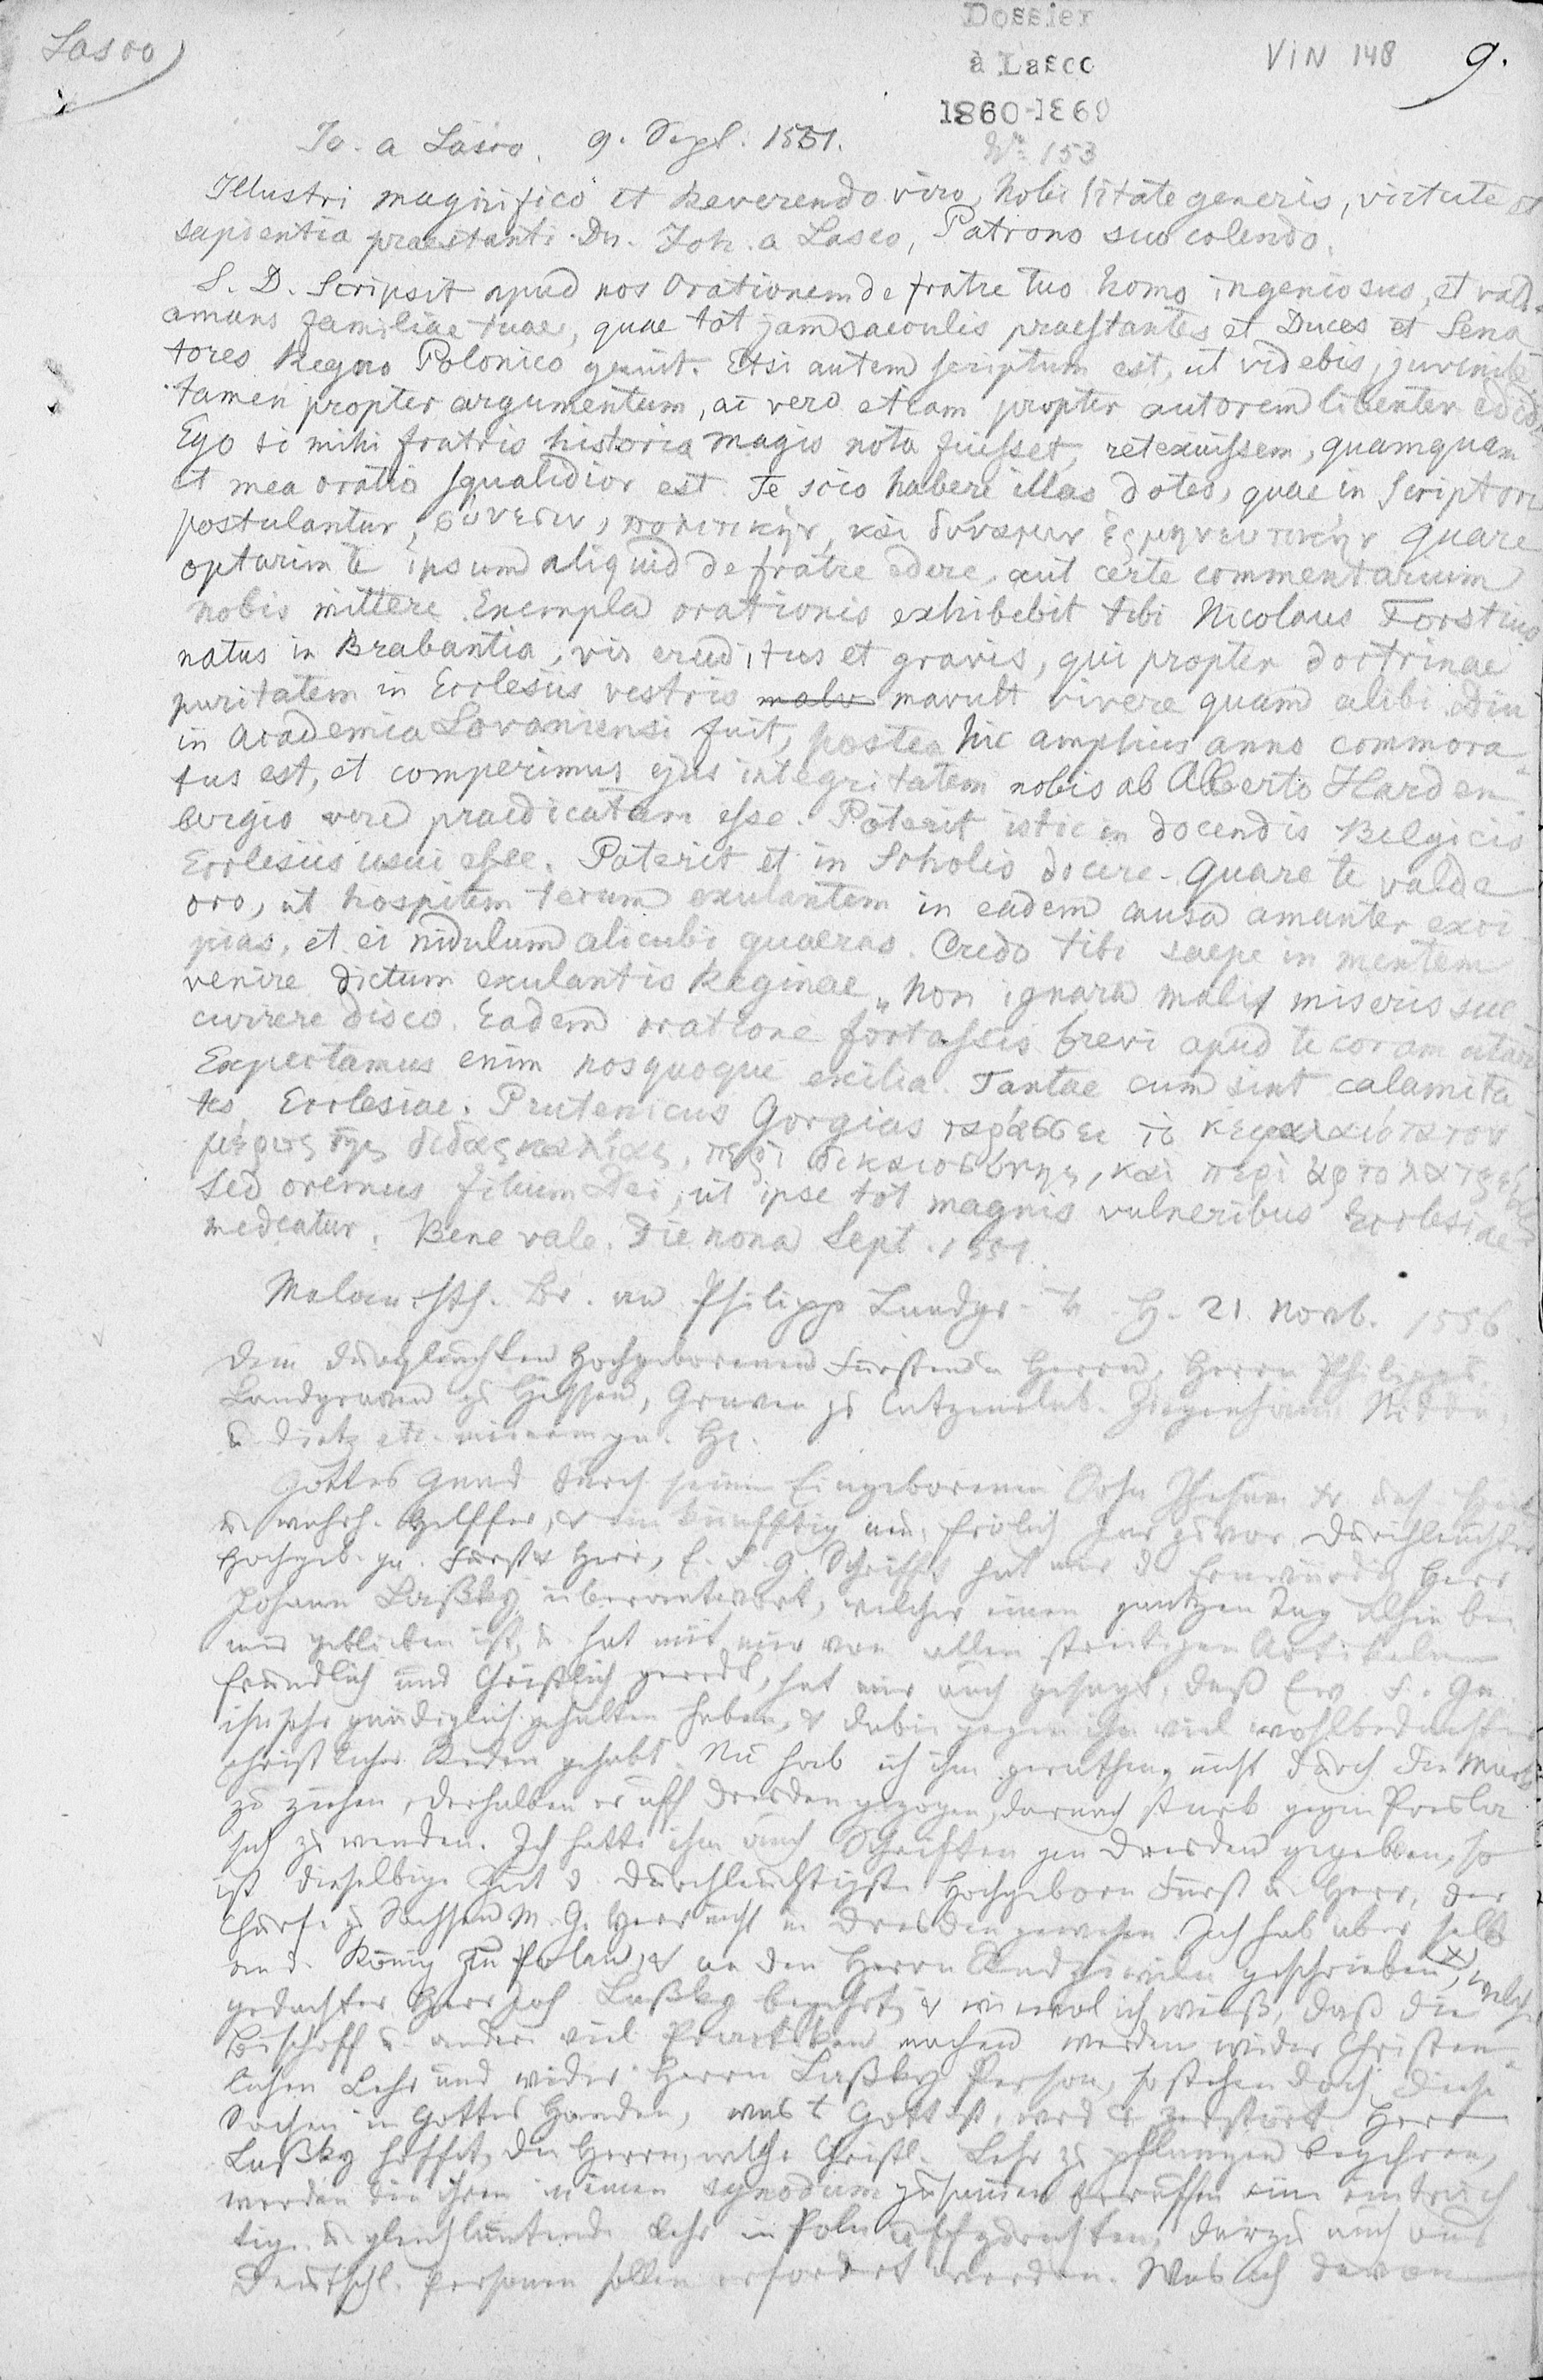 Lasco
Dossier
à Lasco
1860-1869
No 153
VIN 148
9.
Jo. a Lasco. 9. Sept. 1551.
Illustri magnifico et Reverendo viro, Nobilitate generis, virtute et
sapientia praestanti Dn. Joh. a Lasco, Patrono suo colendo.
S. D. Scripsit apud nos Orationem de fratre tuo homo ingeniosus, et valde
amans familiae tuae, quae tot jam saeculis praestantes et Duces et Sena
tores Regno Polonico genuit. Etsi autem scriptum est, ut videbis, juvenile
tamen propter argumentum, ac vero etiam propter autorem libenter edidi
Ego si mihi fratris historia magis nota fuisset, retexuissem, quamquam
et mea oratio squalidior est. Te scio habere illas dotes, quae in Scriptore
postulantur, σύνεσιν, πολιτικήν, καὶ δύναμιν ἑρμηνευτικήν quare
optarim te ipsum aliquid de fratre edere, aut certe commentarium
nobis mittere. Exempla orationis exhibebit tibi Nicolaus Forstius
natus in Brabantia, vir eruditus et gravis, qui propter doctrinae
puritatem in Ecclesiis vestris malv mavult vivere quam alibi. Diu
in Academia Lovaniensi fuit, postea hic amplius anno commora
tus est, et comperimus ejus integritatem nobis ab Alberto Harden
bergio vere praedicatam esse. Poterit istic in docendis Belgicis
Ecclesiis usui esse. Poterit et in Scholis docere. Quare te valde
oro, ut hospitem tecum exulantem in eadem causa amanter exci
pias, et ei nidulum alicubi quaeras. Credo tibi saepe in mentem
venire dictum exulantis Reginae „Non ignara mali miseris suc
currere disco. Eadem oratione fortassis brevi apud te coram utar
Expectamus enim nos quoque exilia. Tantae cum sint calamita
tes Ecclesiae. Prutenicus Gorgias ταράσσει τὸ κεφαλαιότατον
μέρος τῆς διδασκαλίας, περὶ δικαιοσύνης, καὶ περὶ ἀρτολατρείας
Sed oremus filium Dei, ut ipse tot magnis vulneribus Ecclesiae
medeatur. Bene vale. Die nona Sept. 1551.
Melanchth. Br. an Philipp Landgr. v. H. 21. Novb. 1556
Dem durchleuchten Hochgeborenen Fürsten u Herrn, Herrn Philipps
Landgraven zu Hessen, Graven zu Catzenelnb. Ziegenhain, Nidda,
u. Dietz etc. meinem gn. Hr.
Gottes Gnad durch seinen Eingeborenen Sohn Jhesum Chr. uns. Heil
u. wahrh. Helffer, u ein künfftig neu, frölich Jar zuvor. Durchleuchter
Hochgeb. gn. Fürst u Herr, E. F. G. Schrifft hat mir d. Ernwürdig Herr
Johann Laßky überantwort, welcher einen gantzen Tag alhie bei
mir geblieben ist, u. hat mit mir von allen streitigen Artikeln
freundlich und Christlich geredt, hat mir auch gesagt, daß Ew F. Gn.
ihn sehr gnediglich gehalten haben, u dabei gegen ihn viel wohlbedachter
christlicher Reden gehabt. Nu hab ich ihm gerathen, nicht durch die Mark
zu ziehen, derhalben er uff Dresden gezogen, darnach stark gegen Preslau
sich zu wenden. Ich hatte ihm auch Schriften gen Dresden gegeben, so
ist dieselbige Zeit d. Durchleuchtigste Hochgeborn Fürst u. Herr, der
Churf. zu Sachsen M. G. Herr nicht in Dresden gewesen. Ich hab aber selb
an d. König zu Polan, u an den Herrn Radziwiln geschrieben, welche
gedachter Herr Joh Laßky begehrt, u wiewol ich weiß, daß die
Bischoff u. ander viel Practiken machen werden wider Christen
lichen Lehr und wider Herrn Laßky Person, so stehen doch diese
Sachen in Gottes Handen, was t Gott ist, wird r zerstört. Herr
Laßky hoffet, die Herrn, welche Christl. Lehr zu pflanzen begehren,
werden die ihren in einen Synodum zusammen beruffen eine eintrech
tige u gleichlautende Lehr in Poln uffzurichten, darzu auch aus
Deutschl. Personen sollen erfordert werden. Was ich davon